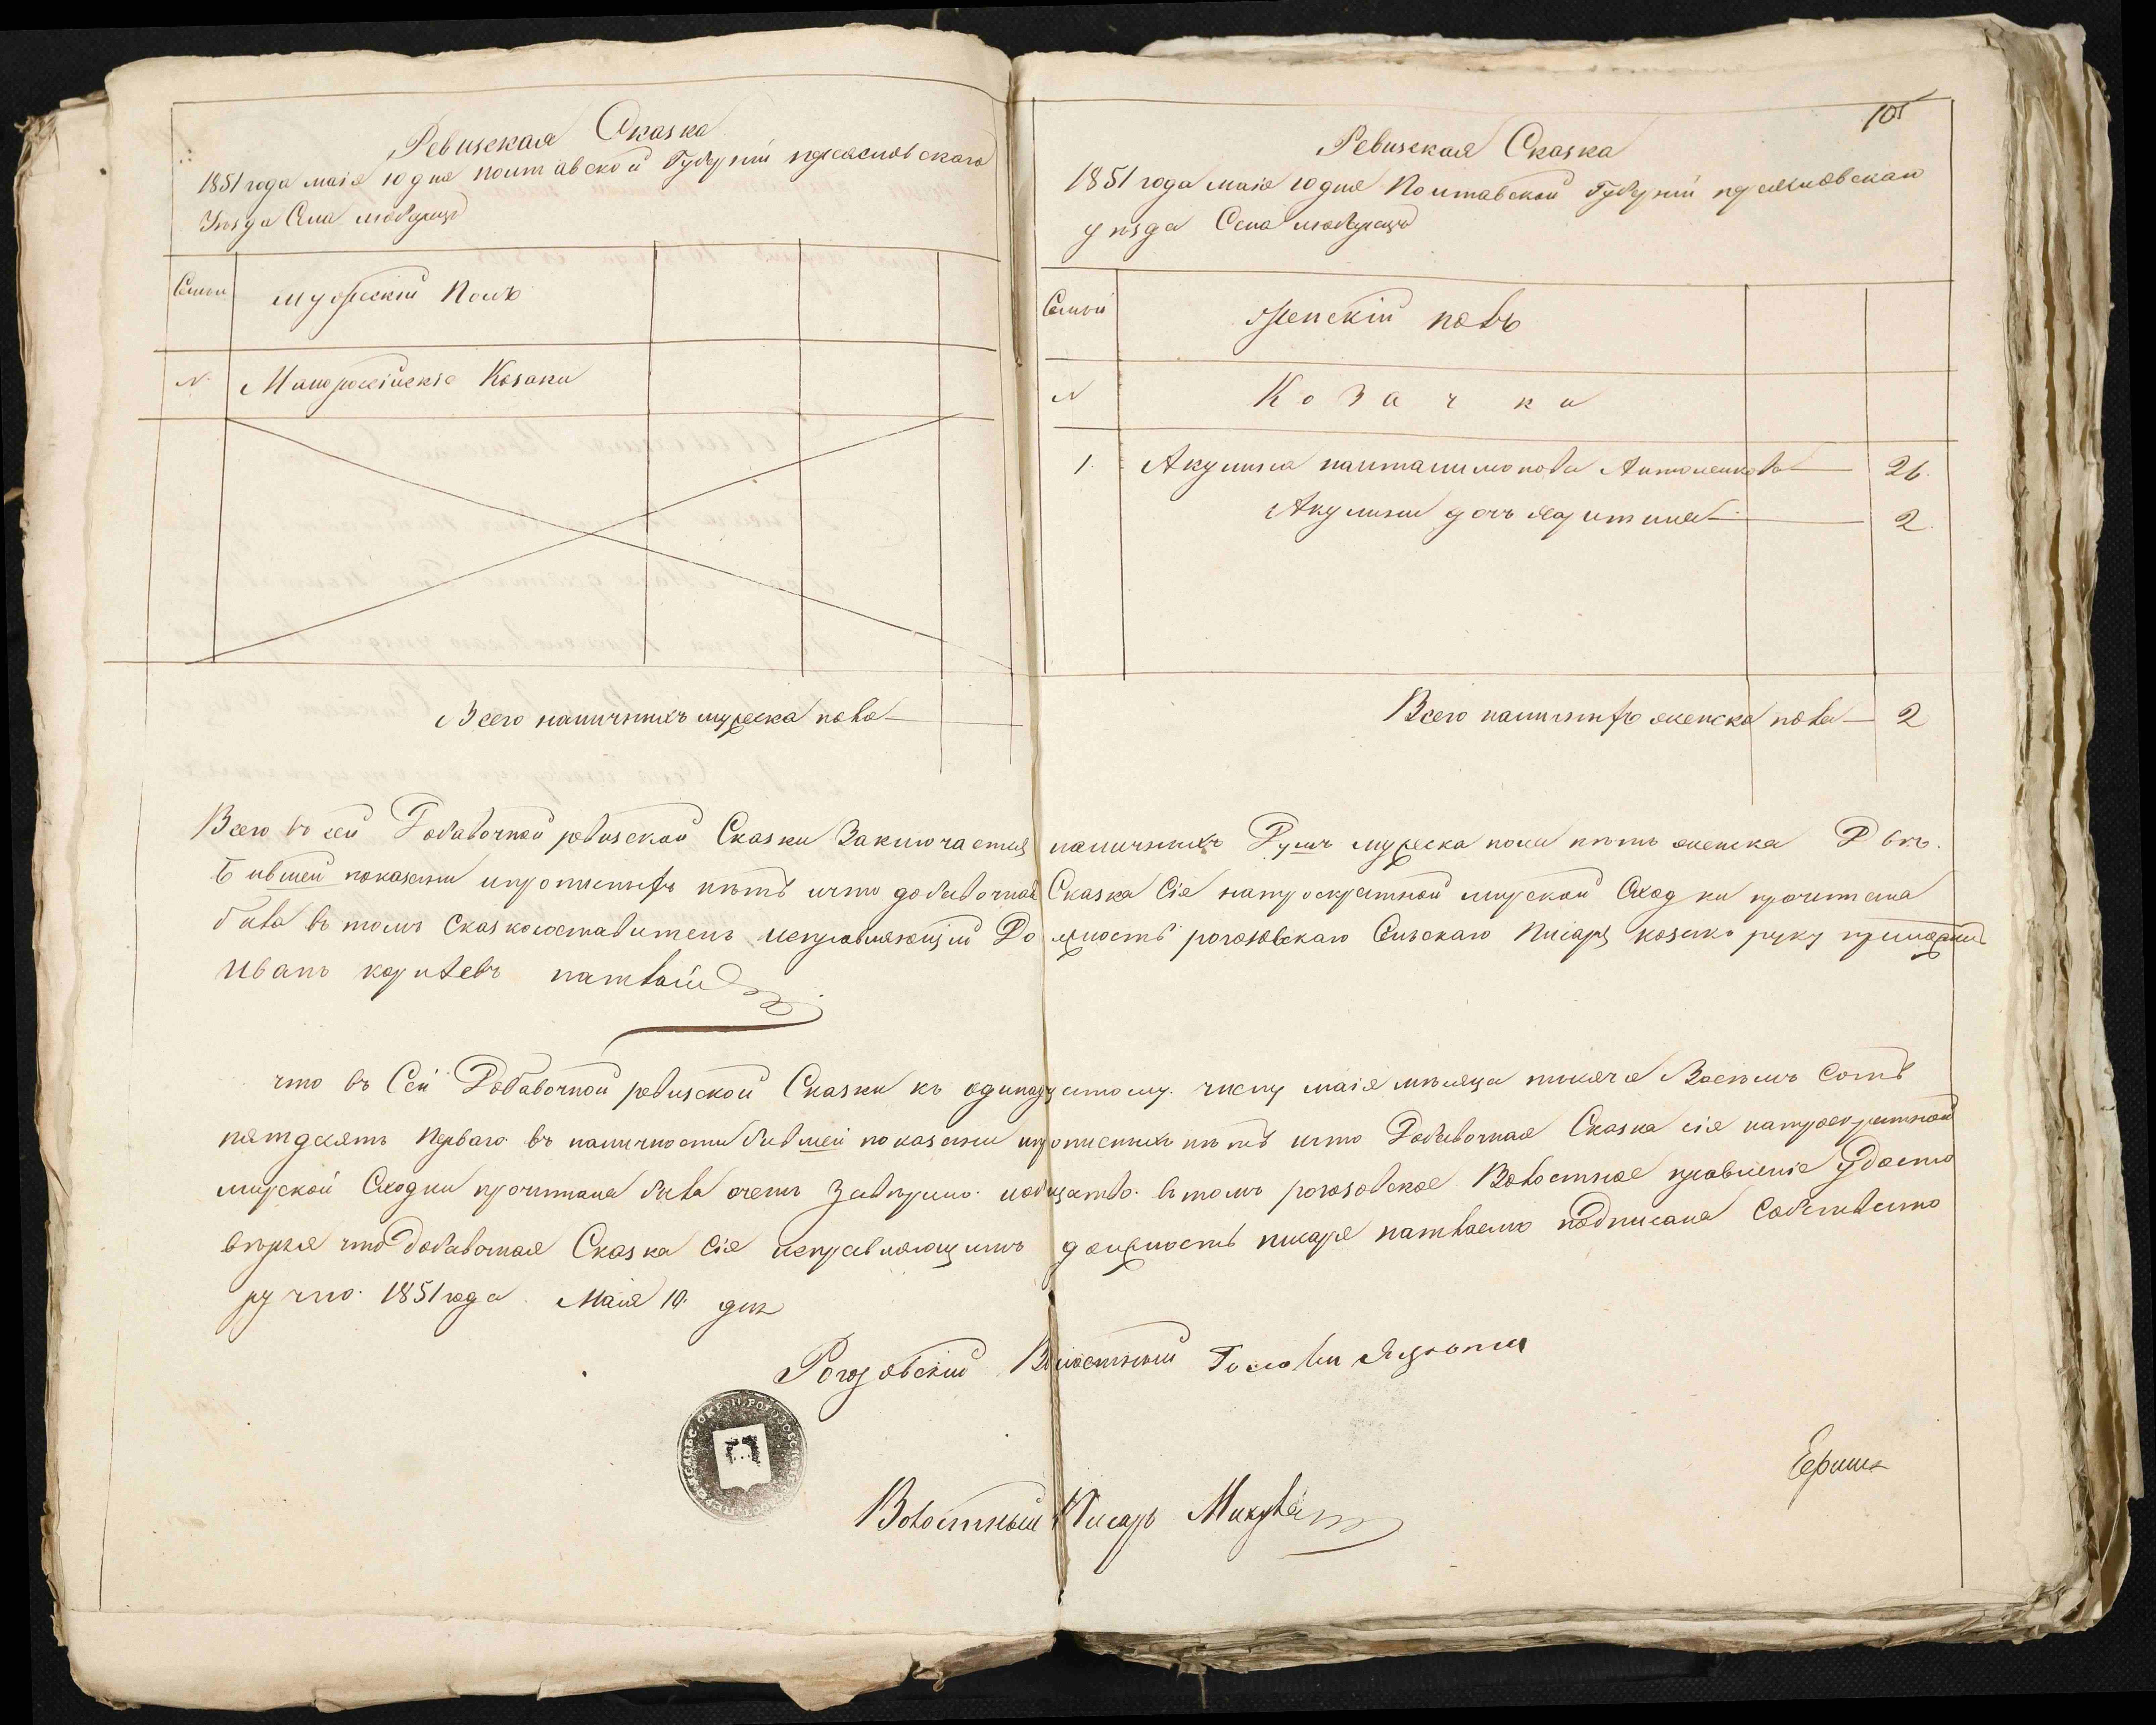 Ревизская Сказка
1851 года маія 10 дня полтавской Губерніи переяславскаго
Уезда Села любарецъ
Семьи
мужескій Полъ
N.
Малороссійскіе Козаки
Всего наличныхъ мужеска пола
105
Ревизская Сказка
1851 года маія 10 дня Полтавской Губерніи переяславскаго
уезда Села любарецъ
Семьи
Женскій полъ
N
Козачки
1. Акулина панталимонова Антоненкова 26.
Акулины дочь 2.
Всего наличныхъ женска пола 2
Всего въ сей Добавочной ревизской Сказки Заключается наличныхъ Душъ мужеска пола нетъ женска Две.
Бившей показаны и прописныхъ нетъ и что добавочная Сказка Сія на троекратной мирской Сходки прочитана
била въ томъ Сказкосоставитель исправляющій Должность рогозовскаго Сельскаго Писаря козакъ руку приложилъ
Иванъ
что въ Сей Добавочной ревизской Сказки къ одинадцатому числу маія месяца тисяча Восемь Сотъ
пятдесятъ Перваго въ наличности бившей показаны и прописнихъ нетъ и что Добавочная Сказка сія на троекратной
мирской Сходки прочитана била въ томъ рогозовское Волостное правленіе Удосто
веряя что Добавочная Сказка Сія исправляющимъ должность писаря подписана Собственно
ручно. 1851 года Маія 10. дня
Рогозовскій Волостный Голова
Волостный Писарь